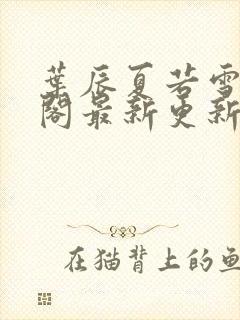 葉辰夏若雪
閣最新更新
在猫背上的鱼